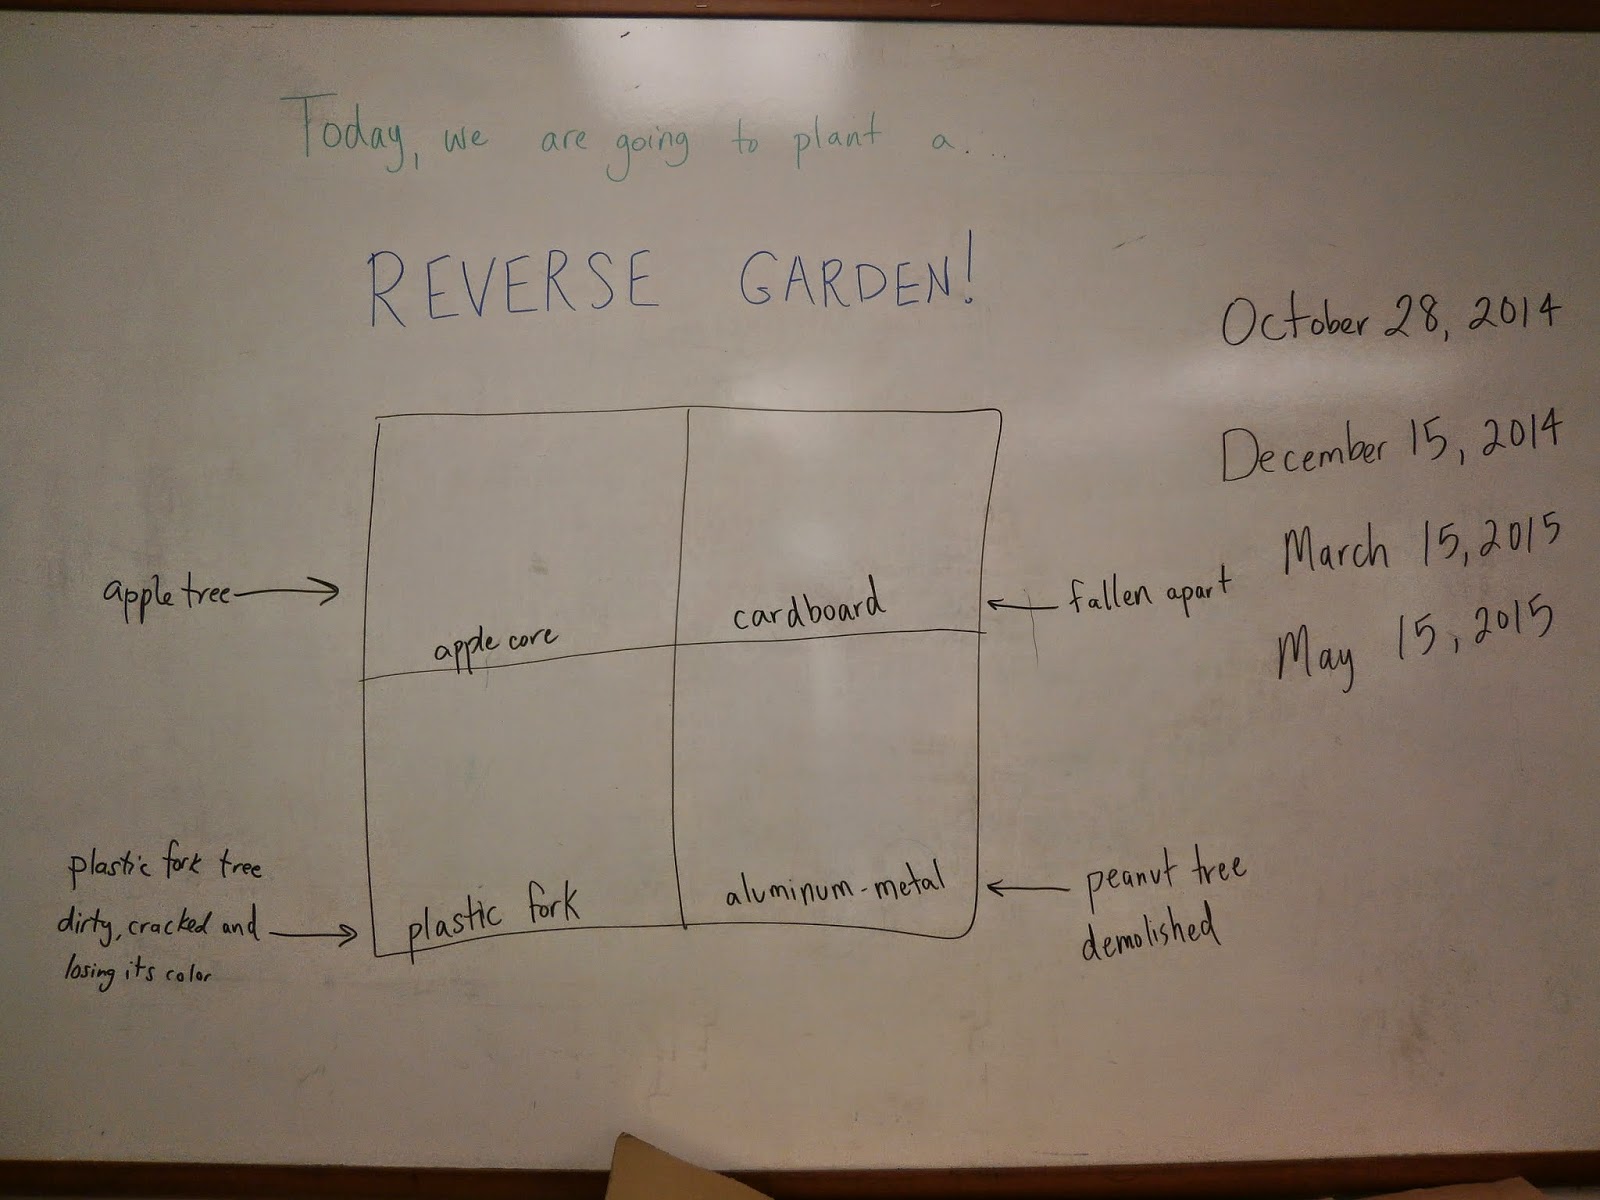 Today, we are going to plant a...
REVERSE GARDEN!
October 28, 2014
December 15, 2014
March 15, 2015
May 15, 2015
apple tree
apple core
cardboard
fallen apart
plastic fork tree
dirty, cracked and
losing its color
plastic fork
aluminum-metal
peanut tree
demolished